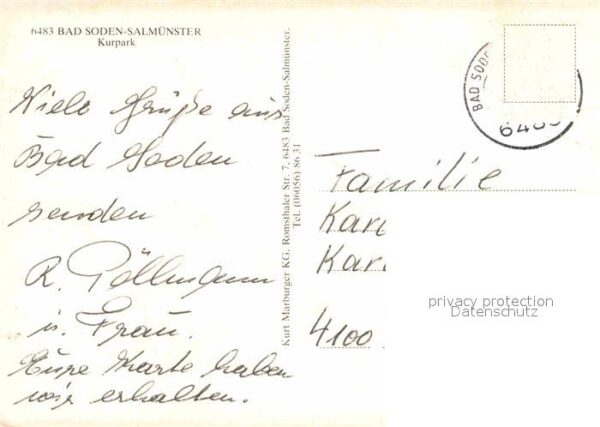 6483 BAD SODEN-SALMÜNSTER
Kurpark
Viele Grüße aus
Bad Soden
senden
R. Pöllmann
u. Frau.
Eure Karte haben
wir erhalten.
Kurt Marburger KG. Romsthaler Str. 7, 6483 Bad Soden-Salmünster.
Tel. (06056) 86 31
BAD SODE
648
Familie
Kar
Kar
4100
privacy protection
Datenschutz